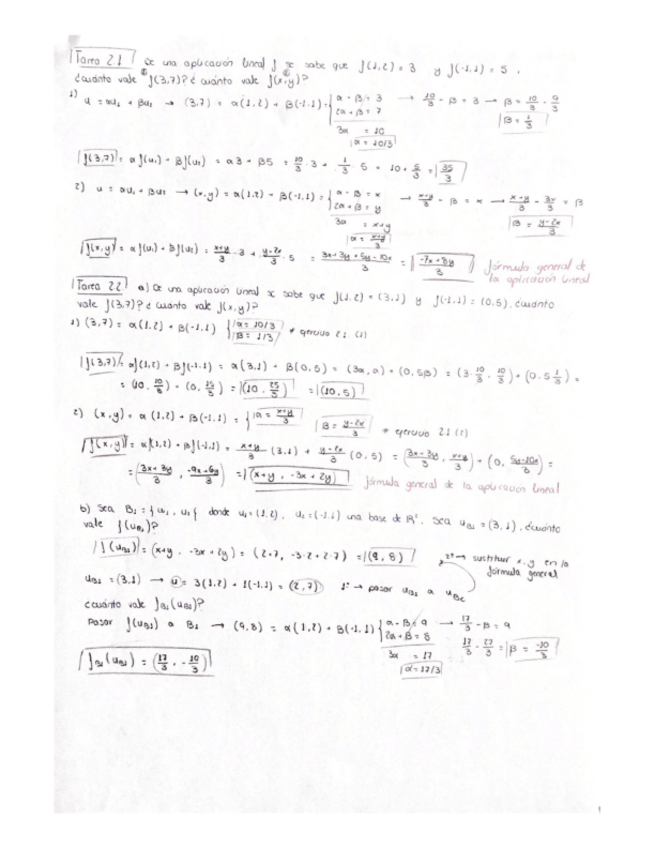 Tarea 2.1 De una aplicación lineal f se sabe que f(1,2) = 3 y f(-1,1) = 5,
¿cuánto vale ① f(3,7)? ¿cuánto vale ② f(x,y)?
1) u = αu₁ + βu₂ → (3,7) = α(1,2) + β(-1,1) = { α - β = 3 → 10/3 - β = 3 → β = 10/3 - 9/3
2α + β = 7 β = 1/3
3α = 10
α = 10/3
f(3,7) = α f(u₁) + β f(u₂) = α3 + β5 = 10/3 · 3 + 1/3 · 5 = 10 + 5/3 = 35/3
2) u = αu₁ + βu₂ → (x,y) = α(1,2) + β(-1,1) = { α - β = x → x+y/3 - β = x → x+y/3 - 3x/3 = β
2α + β = y β = y-2x/3
3α = x+y
α = x+y/3
f(x,y) = α f(u₁) + β f(u₂) = x+y/3 · 3 + y-2x/3 · 5 = 3x+3y+5y-10x/3 = -7x+8y/3 fórmula general de
la aplicación lineal
Tarea 2.2 a) De una aplicación lineal se sabe que f(1,2) = (3,1) y f(-1,1) = (0,5), ¿cuánto
vale f(3,7)? ¿cuánto vale f(x,y)?
1) (3,7) = α(1,2) + β(-1,1) { α = 10/3 * ejercicio 2.1 (1)
β = 1/3
f(3,7) = αf(1,2) + βf(-1,1) = α(3,1) + β(0,5) = (3α, α) + (0, 5β) = (3·10/3, 10/3) + (0, 5·1/3) =
= (10, 10/3) + (0, 15/3) = (10, 25/3) = (10,5)
2) (x,y) = α(1,2) + β(-1,1) = { α = x+y/3 β = y-2x/3 * ejercicio 2.1 (2)
f(x,y) = αf(1,2) + βf(-1,1) = x+y/3 (3,1) + y-2x/3 (0,5) = (3x+3y/3, x+y/3) + (0, 5y-10x/3) =
= (3x+3y/3, -9x+6y/3) = (x+y, -3x+2y) fórmula general de la aplicación lineal
b) Sea B₁ = {u₁, u₂} donde u₁ = (1,2), u₂ = (-1,1) una base de R². Sea u_B₁ = (3,1), ¿cuánto
vale f(u_B₁)?
f(u_B₁) = (x+y, -3x+2y) = (2+7, -3·2+2·7) = (9,8) 2º → sustituir x,y en la
fórmula general
u_B₁ = (3,1) → u = 3(1,2) + 1(-1,1) = (2,7) 1º → pasar u_B₁ a u_Bc
¿cuánto vale f_B₁(u_B₁)?
Pasar f(u_B₁) a B₁ → (9,8) = α(1,2) + β(-1,1) { α - β = 9 → 17/3 - β = 9
2α + β = 8 17/3 - 27/3 = β = -10/3
3α = 17
α = 17/3
f_B₁(u_B₁) = (17/3, -10/3)